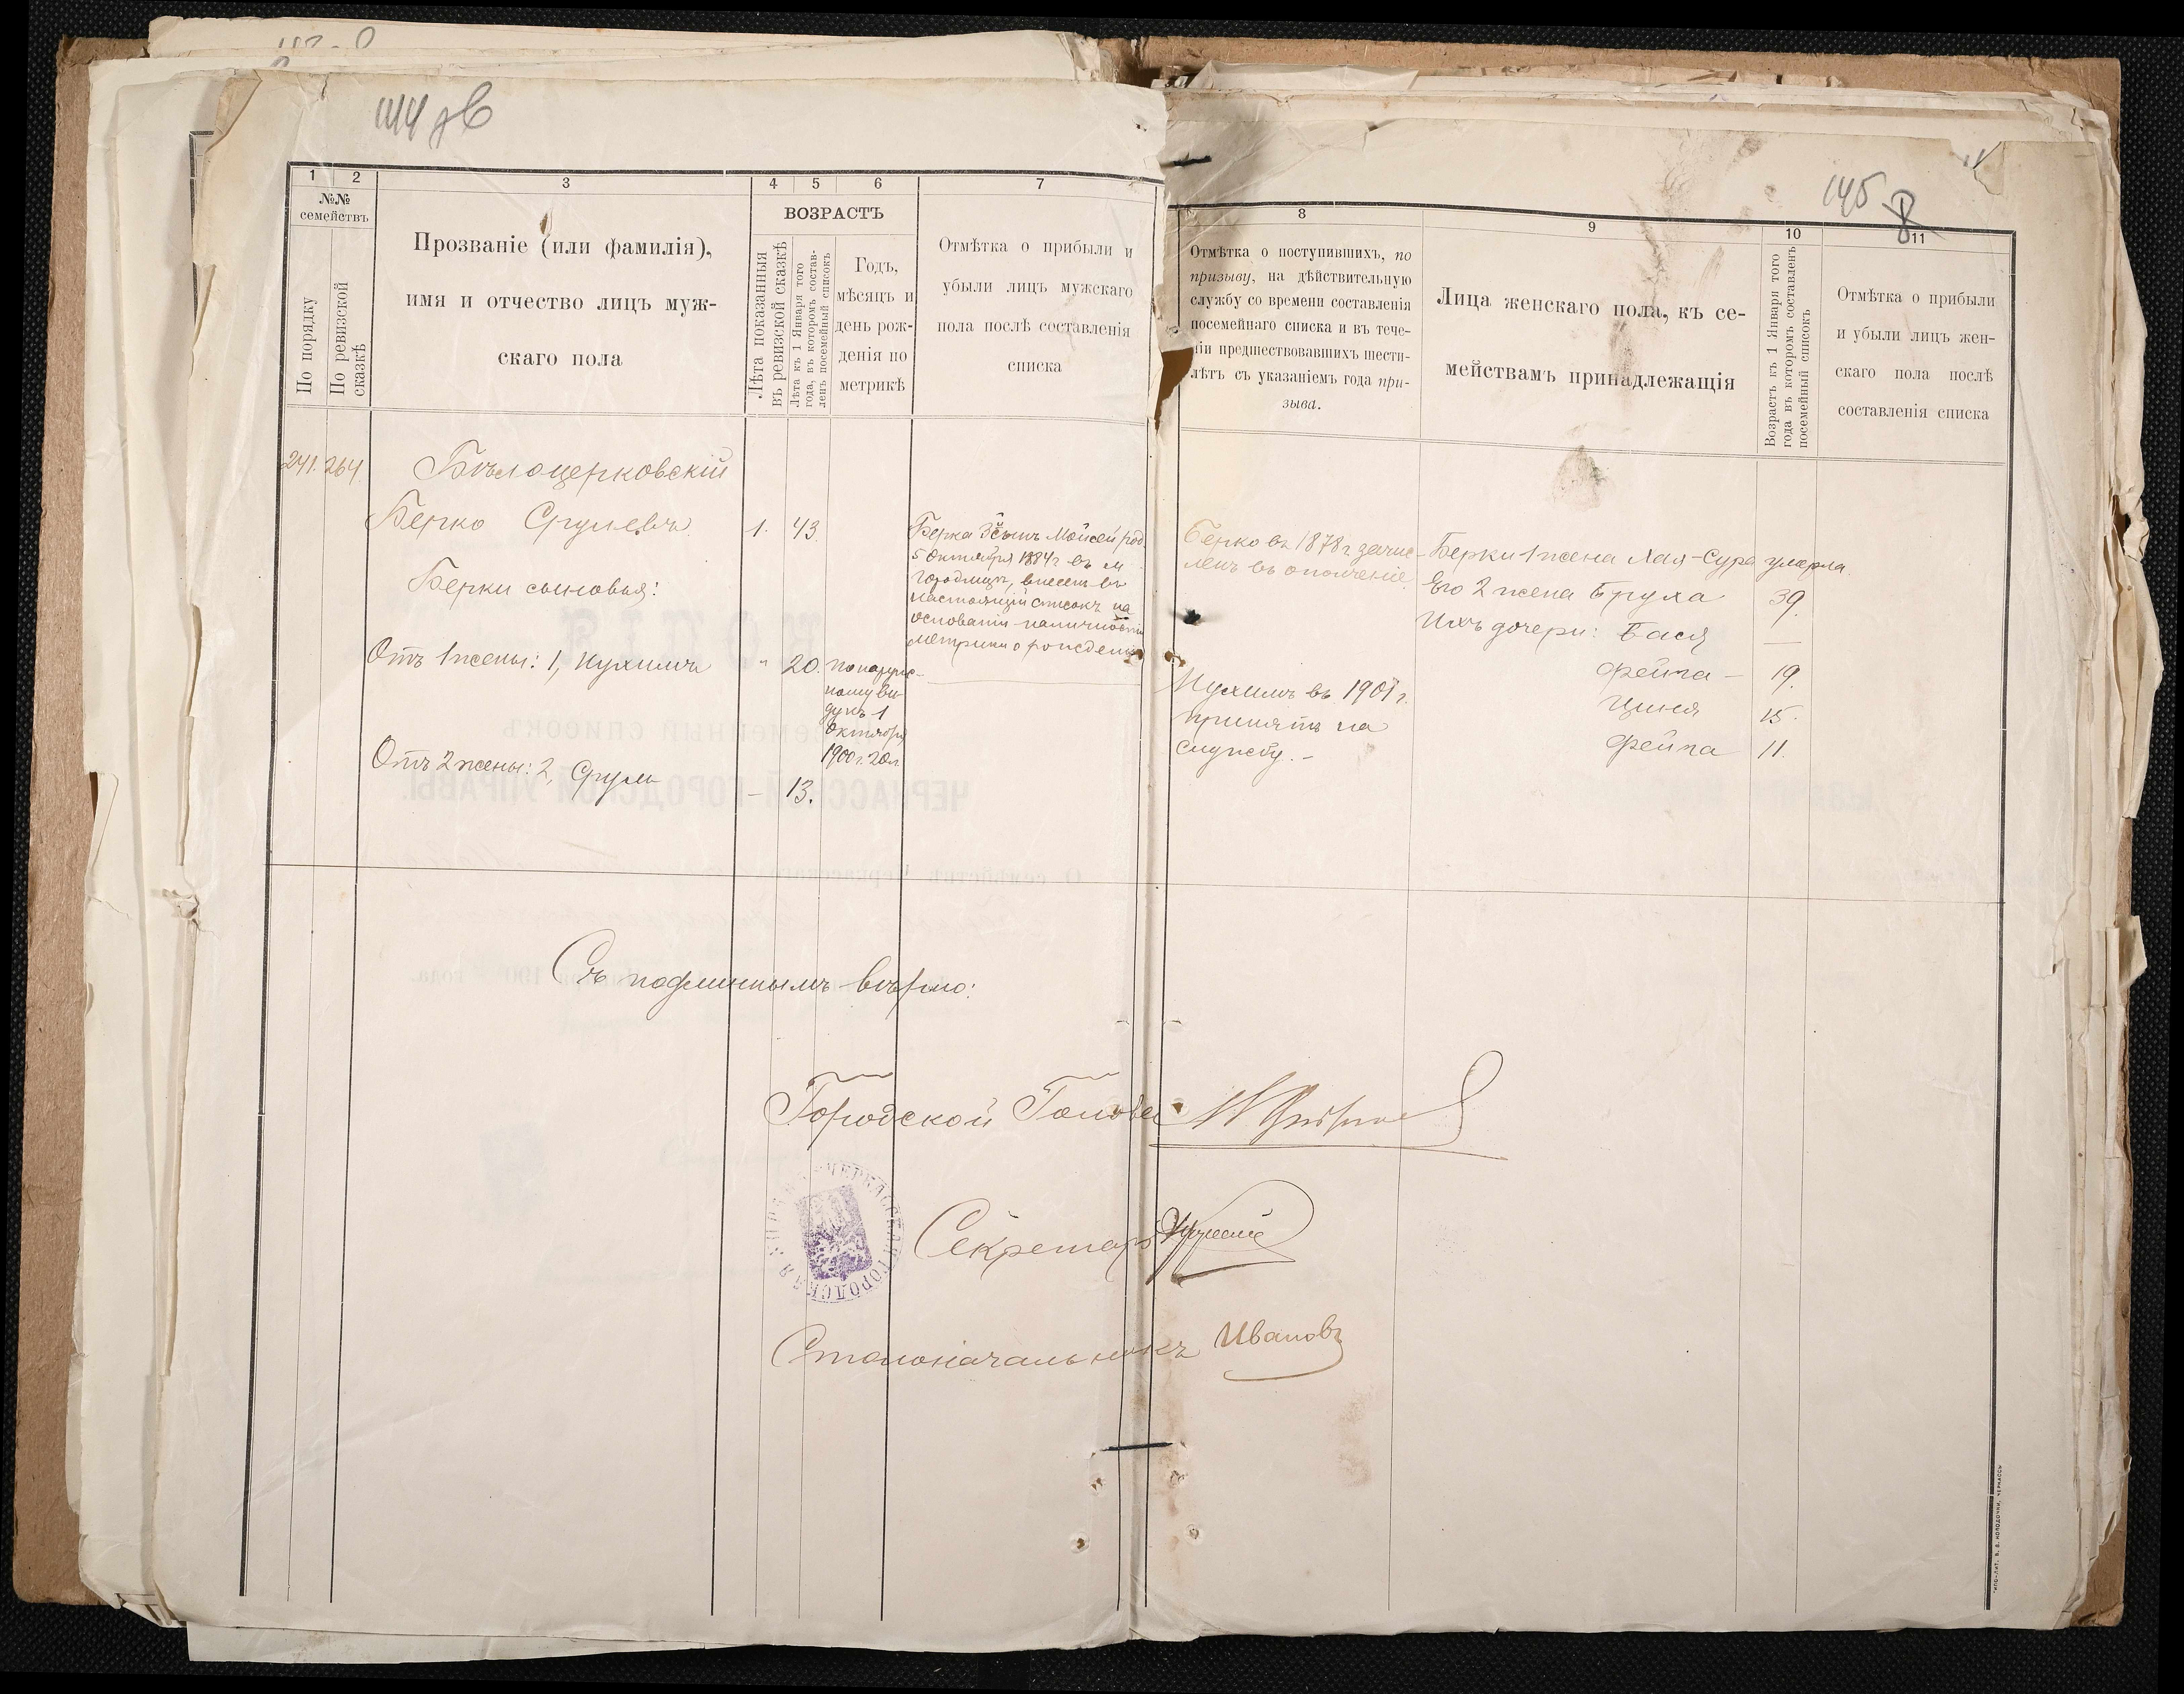 144 об
1
2
3
4
5
6
7
№№
семействъ
По порядку
По ревизской
сказкѣ
Прозваніе (или фамилія),
имя и отчество лицъ муж-
скаго пола
ВОЗРАСТЪ
Лѣта показанныя
въ ревизской сказкѣ
Лѣта къ 1 Января того
года, въ которомъ состав-
ленъ посемейный списокъ
Годъ,
мѣсяцъ и
день рож-
денія по
метрикѣ
Отмѣтка о прибыли и
убыли лицъ мужскаго
пола послѣ составленія
списка
241. 264.
Бѣлоцерковскій
Берко Срулевъ
1. 43.
Берки сыновья:
Отъ 1 жены: 1, Нухимъ
" 20.
по наруж-
ному ви-
ду къ 1
Октября
1900 г. 20 л.
Отъ 2 жены: 2, Сруль
— 13.
Берка 3й сынъ Мойсей род.
5 Октября 1884 г въ м.
Городищѣ, внесенъ въ
настоящій списокъ на
основаніи наличности
метрики о рожденіи
145
8
8
9
10
11
Отмѣтка о поступившихъ, по
призыву, на дѣйствительную
службу со времени составленія
посемейнаго списка и въ тече-
ніи предшествовавшихъ шести-
лѣтъ съ указаніемъ года при-
зыва.
Лица женскаго пола, къ се-
мействамъ принадлежащія
Возрастъ къ 1 Января того
года въ которомъ составленъ
посемейный списокъ
Отмѣтка о прибыли
и убыли лицъ жен-
скаго пола послѣ
составленія списка
Берко въ 1878 г зачис-
ленъ въ ополченіе
Нухимъ въ 1901 г.
принятъ на
службу. -
Берки 1 жена Лая-Сура умерла.
Его 2 жена Бруха 39.
Ихъ дочери: Бася —
Фейга - 19.
Циня 15.
Фейга 11.
Съ подлиннымъ вѣрно:
Городской Голова
Секретарь
ЧЕРКАССКАЯ ГОРОДСКАЯ УПРАВА
Столоначальникъ Ивановъ